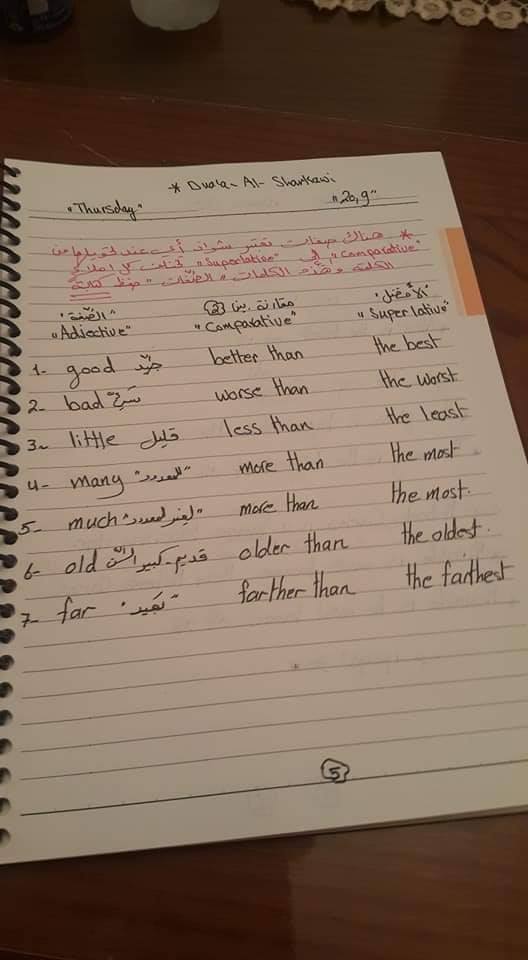 * Duala-Al-Sharkawi
"Thursday" "20,9"
* هناك صفات تعتبر شواذ أي عند تحويلها من
"Comparative" إلى "Superlative" تختلف كل
الكلمة وهذه الكلمات "الصفات" حفظ
"الصِّفة" مقارنة بين (2) "الأفضل"
"Adjective" "Comparative" "Superlative"
1- good جيّد better than the best
2- bad سيّئ worse than the worst
3- little قليل less than the least
4- many "للمعدود" more than the most
5- much "لغير المعدود" more than the most.
6- old قديم - كبير السّن older than the oldest.
7- far "بَعيد" farther than the farthest
5